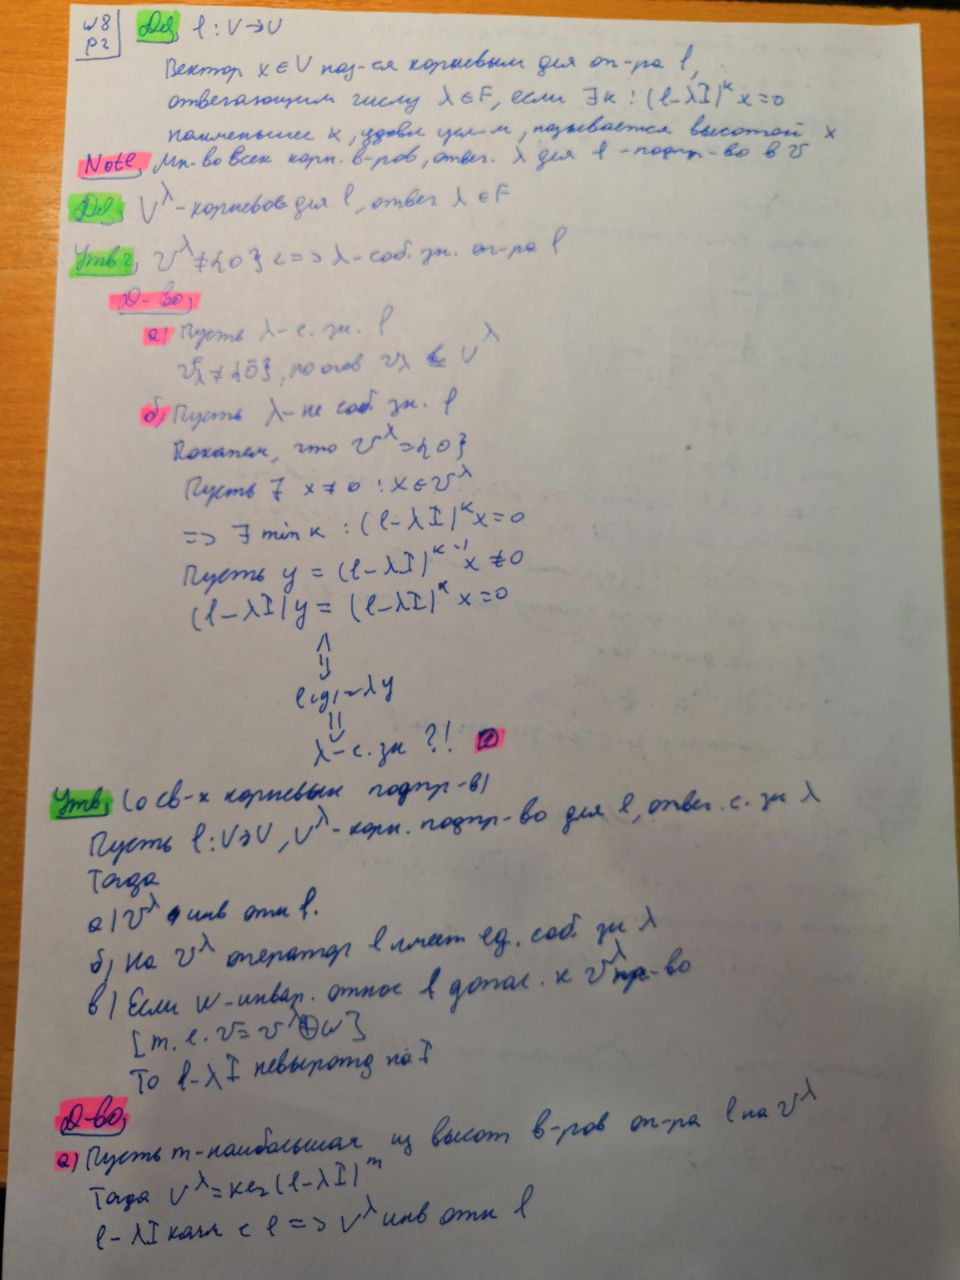 w8
p2
Def, l : V→V
Вектор x∈V наз-ся корневым для оп-ра l,
отвегающим числу λ∈F, если ∃k : (l-λI)^k x=0
наименьшее k, удовл усл-м, называется высотой x
Note, Мн-во всех корн. в-ров, ответ. λ для l - подпр-во в V
Def, V^λ - корневое для l, отвеч λ∈F
Утв 1, V^λ≠{0} <=> λ-соб. зн. оп-ра l
Д-во,
а) Пусть λ- с. зн. l
V_λ≠{0}, по опов V_λ ⊆ V^λ
б) Пусть λ-не соб зн. l
Покажем, что V^λ={0}
Пусть ∃ x≠0 : x∈V^λ
=> ∃ min k : (l-λI)^k x=0
Пусть y = (l-λI)^{k-1} x ≠0
(l-λI)y = (l-λI)^k x=0
⇕
l(y)=λy
⇓
λ-с. зн ?!
Утв, (о св-х корневых подпр-в)
Пусть l : V→V, V^λ-корн. подпр-во для l, ответ. с. зн λ
Тогда
а) V^λ инв отн l.
б) На V^λ оператор l имеет ед. соб. зн λ
в) Если W-инвар. относ l допол. к V^λ пр-во
[т. е. V= V^λ⊕W]
То l-λI невырожд на I
Д-во,
а) Пусть m-наибольшая из высот в-ров оп-ра l на V^λ
Тогда V^λ=ker(l-λI)^m
l-λI комм с l => V^λ инв отн l